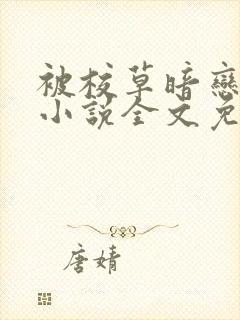 被校草暗戀
小説全文免
唐婧